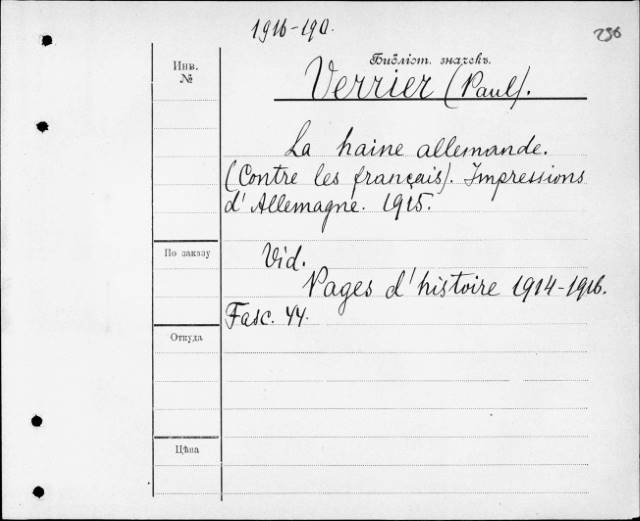 1916-190.
236
Библіот. значекъ.
Инв.
№
Verrier (Paul).
La haine allemande.
(Contre les français). Impressions
d'Allemagne. 1915.
По заказу
Vid.
Pages d'histoire 1914-1916.
Fasc. 44.
Откуда
Цѣна